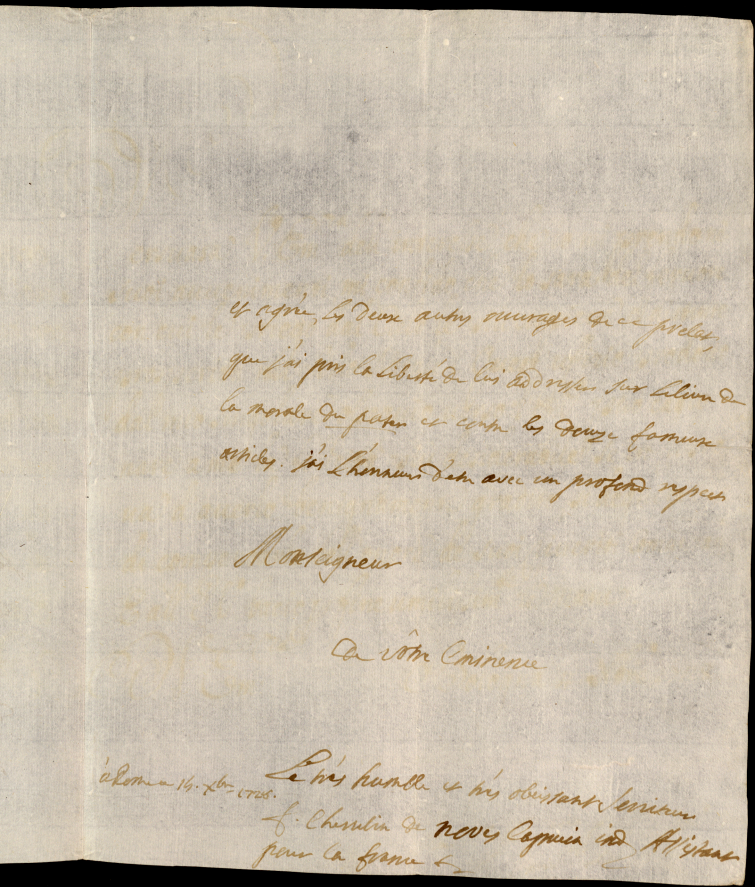 et agrée les deux autres ouvrages de ce prelat,
que j'ai pris la Liberté de lui addresser sur Le livre de
la morale du pater et contre les douze fameux
articles. j'ai L'honneur d'etre avec un profond respect
Monseigneur
de vôtre Eminence
à Rome ce 14. Xbre 1726.
Le très humble et très obeissant Serviteur
f. Cherubin de noves Capucin ind. Assistant
pour la france